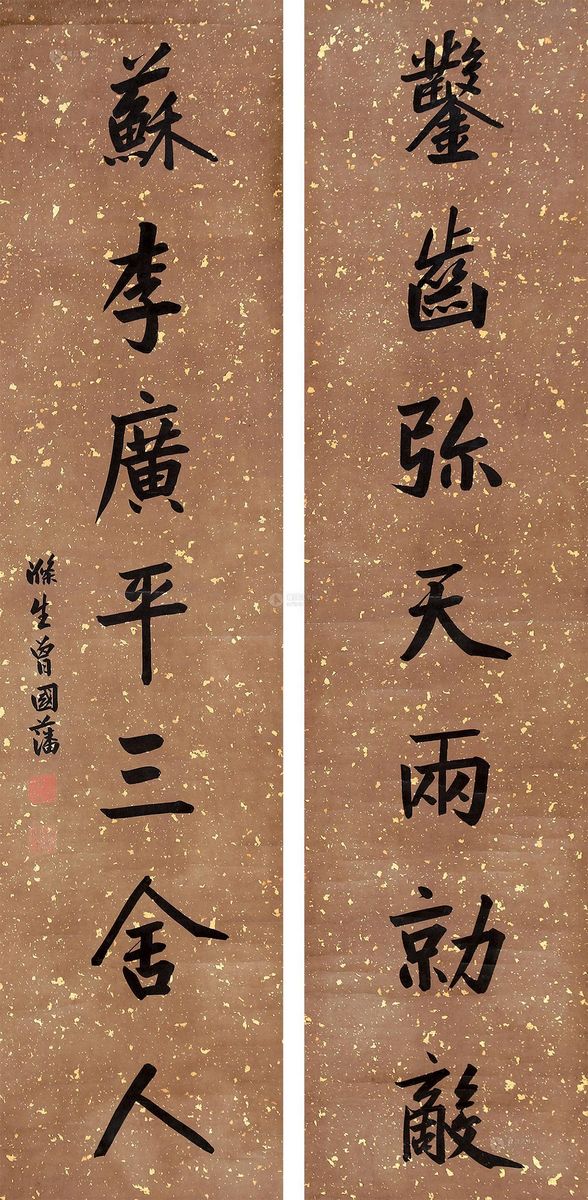 鑿齒弥天兩勍敵
蘇李廣平三舍人
滌生曾國藩